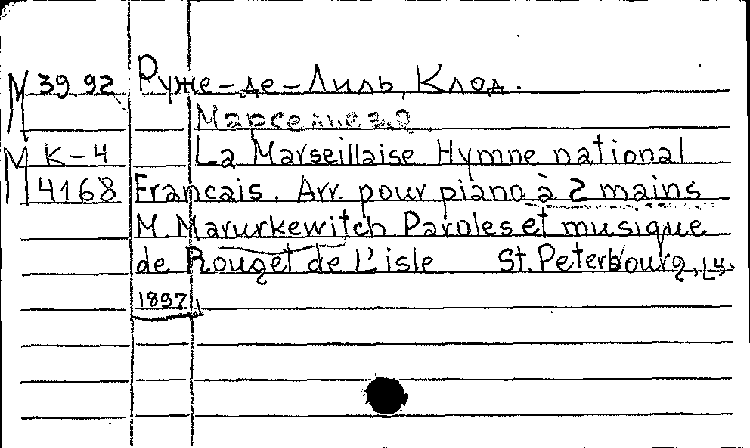 М 39 92 Руже-де-Лиль, Клод.
Марсельеза.
М К-4 La Marseillaise Hymne national
4168 Francais. Arr. pour piano à 2 mains
M. Marurkewitch Paroles et musique
de Rouget de L'isle St. Peterbourg,
1897